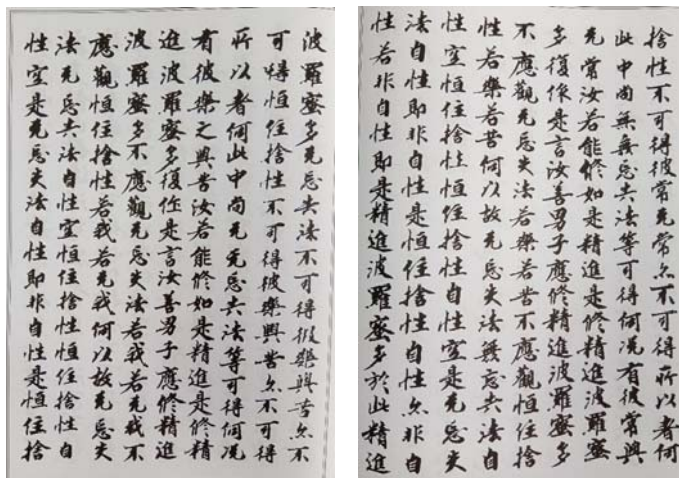 捨性不可得彼常无常亦不可得所以者何
此中尚無無忘失法等可得何況有彼常與
无常汝若能修如是精進是修精進波羅蜜
多復作是言汝善男子應修精進波羅蜜多
不應觀无忘失法若樂若苦不應觀恒住捨
性若樂若苦何以故无忘失法無忘失法自
性空恒住捨性恒住捨性自性空是无忘失
法自性即非自性是恒住捨性自性亦非自
性若非自性即是精進波羅蜜多於此精進
波羅蜜多无忘失法不可得彼樂與苦亦不
可得恒住捨性不可得彼樂與苦亦不可得
所以者何此中尚无无忘失法等可得何況
有彼樂之與苦汝若能修如是精進是修精
進波羅蜜多復作是言汝善男子應修精進
波羅蜜多不應觀无忘失法若我若无我不
應觀恒住捨性若我若无我何以故无忘失
法无忘失法自性空恒住捨性恒住捨性自
性空是无忘失法自性即非自性是恒住捨